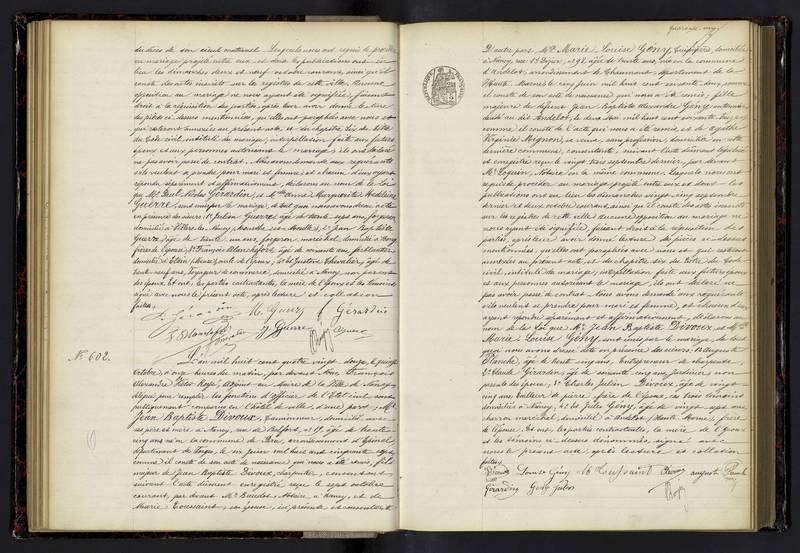 du décès de son aïeul maternel. Lesquels nous ont requis de procéder
au mariage projeté entre eux et dont les publications ont eu
lieu les dimanches deux et neuf octobre courant, ainsi qu'il
conste des actes inscrits sur les registres de cette ville. Aucune
opposition au mariage ne nous ayant été signifiée, faisant
droit à la réquisition des parties, après leur avoir donné lecture
des pièces ci-dessus mentionnées, qu'elles ont paraphées avec nous et
qui resteront annexées au présent acte, et du chapitre six du titre
du Code civil, intitulé du mariage; interpellation faite aux futurs
époux et aux personnes autorisant le mariage, ils ont déclaré
ne pas avoir passé de contrat. Nous avons demandé aux requérants
s'ils veulent se prendre pour mari et femme, et chacun d'eux ayant
répondu séparément et affirmativement, déclarons au nom de la loi
que Mr Paul Nicolas Girardin et Mlle Anne Marguerite Madeleine
Guerre, sont unis par le mariage, de tout quoi nous avons dressé acte
en présence des sieurs: 1° Julien Guerre, âgé de trente sept ans, forgeron,
domicilié à Villers-les-Nancy, 2° Jean Baptiste
Guerre, âgé de trente un ans, forgeron, maréchal, domicilié à Nancy,
frères de l'épouse, 3° François Blanchefort, âgé de soixante ans, ferblantier,
domicilié à Etain (Meuse), oncle de l'époux, 4° et Gustave Chevalier, âgé de
vingt-neuf ans, voyageur de commerce, domicilié à Nancy, non parent
des époux. Et ont, les parties contractantes, la mère de l'époux et les témoins
signé avec nous le présent acte, après lecture et collation
faites.
M. Guerre Girardin
J Guerre
N° 602.
L'an mil huit cent quatre vingt douze, le quinze
octobre, à onze heures du matin, par devant Nous François
Alexandre Victor Roye, adjoint au Maire de la Ville de Nancy,
délégué pour remplir les fonctions d'officier de l'Etat civil, sont
publiquement comparus en l'hôtel de ville, d'une part, Mr
Jean Baptiste Divoux, camionneur, domicilié avec
ses père et mère à Nancy, rue de Belfort, n° 19, âgé de trente
cinq ans, né en la commune de arrondissement d'Epinal,
département des Vosges, le six juin mil huit cent cinquante sept,
comme il conste de son acte de naissance qui nous a été remis, fils
majeur de Jean Baptiste Divoux, charpentier, consentant
suivant l'acte dûment enregistré reçu le sept octobre
courant, par devant Me Baudot, Notaire à Nancy, et de
Marie Toussaint, son épouse, ici présente et consentante
D'autre part, Mlle Marie Louise Gény, domiciliée
à Nancy, rue St Dizier, n° 98, âgée de trente ans, née en la commune
d'Andelot, arrondissement de Chaumont, département de la
Haute Marne, le cinq juin mil huit cent soixante deux, comme
il conste de son acte de naissance qui nous a été remis, fille
majeure de défunt Jean Baptiste Alexandre Gény
décédé au dit Andelot,
comme il conste de l'acte qui nous a été remis, et de
Virginie Mognon, sa veuve, sans profession, domiciliée en cette
dernière commune, consentante, suivant l'acte dûment légalisé
et enregistré reçu le vingt trois septembre dernier, par devant
Me Loquin, Notaire, en la même commune. Lesquels nous ont
requis de procéder au mariage projeté entre eux et dont les
publications ont eu lieu les dimanches vingt cinq septembre
dernier et deux octobre courant, ainsi que il conste des actes inscrits
sur les registres de cette ville. Aucune opposition au mariage ne
nous ayant été signifiée, faisant droit à la réquisition des
parties, après leur avoir donné lecture des pièces ci-dessus
mentionnées, qu'elles ont paraphées avec nous et qui resteront
annexées au présent acte, et du chapitre six du titre du Code
civil, intitulé du mariage; interpellation faite aux futurs époux
et aux personnes autorisant le mariage, ils ont déclaré ne
pas avoir passé de contrat. Nous avons demandé aux requérants
s'ils veulent se prendre pour mari et femme, et chacun d'eux
ayant répondu séparément et affirmativement, déclarons au
nom de la loi que Mr Jean Baptiste Divoux et Mlle
Marie Louise Gény sont unis par le mariage, de tout
quoi nous avons dressé acte en présence des sieurs: 1° Auguste
âgé de trente cinq ans, Entrepreneur de transports,
2° Claude Girardin, âgé de soixante cinq ans, jardinier, non
parents des époux, 3° Charles Julien Divoux, âgé de vingt-
cinq ans, tailleur de pierre, frère de l'époux, ces trois témoins
domiciliés à Nancy, 4° et Jules Gény, âgé de vingt sept ans,
maréchal, domicilié à Andelot (Haute Marne), frère
de l'épouse. Et ont, les parties contractantes, la mère de l'époux
et les témoins ci-dessus dénommés, signé avec
nous le présent acte, après lecture et collation
faites.
Divoux Louise Gény M Toussaint Divoux august
Girardin Gény Jules